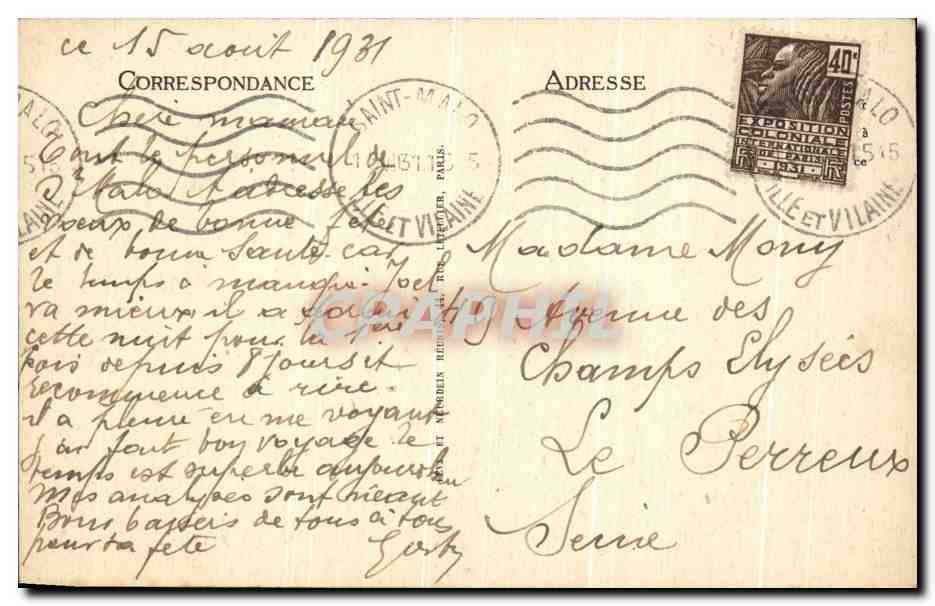 ce 15 août 1931
CORRESPONDANCE
Chère maman
Tout le personnel de
St Malo t'adresse les
voeux de bonne fête
et de bonne santé car
le temps a manqué. Joel
va mieux, il a dormi
cette nuit pour la 1ère
fois depuis 8 jours et
recommence à rire.
il a pleuré en me voyant
J'ai fait bon voyage le
temps est superbe aujourd'hui
Mes analyses sont néant
Bons baisers de tous à tous
pour ta fête
ADRESSE
Madame Mony
49 Avenue des
Champs Elysées
Le Perreux
Seine
SAINT-MALO
ILLE ET VILAINE
40c
POSTES
EXPOSITION
COLONIALE
INTERNATIONALE
DE PARIS
1931
LEVY ET NEURDEIN RÉUNIS, 44, RUE LETELLIER, PARIS.
CPAPHIL